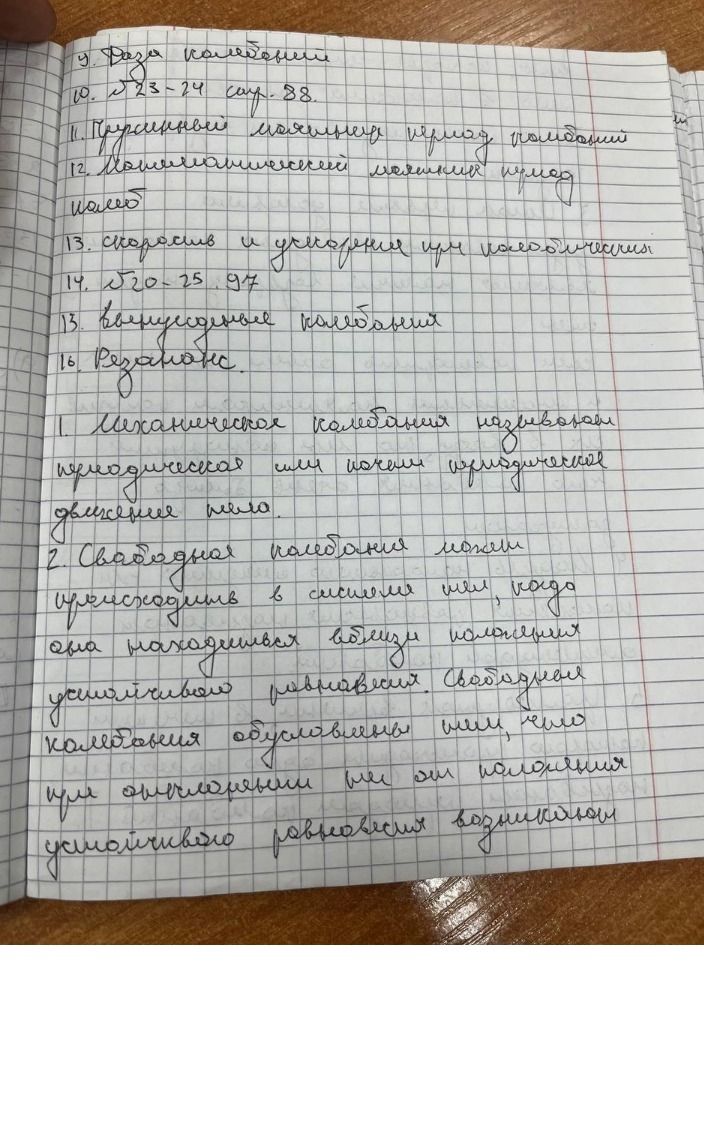 9. Фаза колебаний
10. №23-24 стр. 88.
11. Пружинный маятник период колебаний
12. Математический маятник период
колеб
13. скорость и ускорения при
14. №20-25. 97
13. Вынужденые колебания
16. Резананс.
1. Механическое колебания называют
периодическая или почти периодическое
движение тела.
2. Свабадная колебания может
происходить в системе тел, когда
она находиться вблизи положения
устойчивого равновесия. Свабадные
колебания обусловлены тем, что
при отклонении тел от положения
устойчивого равновесия возникают